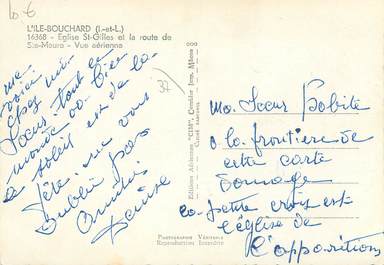 10 €
L'ILE-BOUCHARD (I.-et-L.)
16368 - Eglise St-Gilles et la route de
Ste-Maure - Vue aérienne
37
me
voici
chez mi
Soeur. tout le
monde va bien
le soleil est de la
fête. ne vous
oublie pas
Amitiés
Denise
Editions Aériennes "CIM", Combier Imp. Mâcon
ma Soeur habite
a la frontière de
cette carte
Dommage
la petite croix est
l'église de
l'apparition
PHOTOGRAPHIE VÉRITABLE
Reproduction Interdite